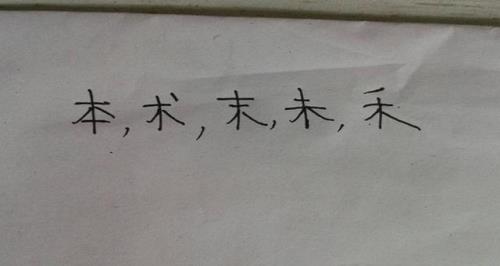 本,术,末,未,禾